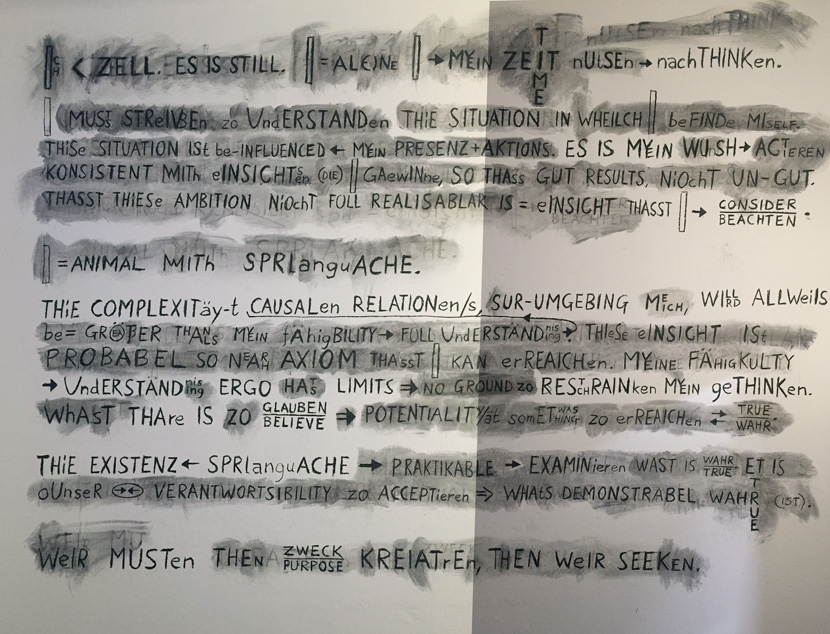 < ZELL. ES IS STILL. = ALEINE → MEIN ZEIT TIME nUtSEn → nachTHINKen.
MUST STREIVBEn zo UndERSTANDen THiE SITUATION IN WHEILCH beFINDe MIsELF.
THiSe SITUATION ISt be-INFLUENCED ← MEiN PRESENZ+AKTIONS. ES IS MEiN WUnSH → ACTEREN
KONSISTENT MITh eINSICHTsen (DIE) GAeWINNe, SO THAss GUT RESULTS, NiOchT UN-GUT.
THASST THIESe AMBITION NiOchT FOLL REALISABLAR IS = eINSICHT THASST → CONSIDER BEACHTEN.
= ANIMAL MITh SPRLanguACHE.
THiE COMPLEXITäy-t CAUSALen RELATIONen/s, SUR-UMGEBING MEich, WILLRD ALLWeilS
be = GRÖßER THANALS MEiN fÄhigBILITY → FULL UndERSTANDnising? THieSe eINSICHT ISt
PROBABEL SO NEAR AXIOM THAssT KAN erREAICHen. MEiNE FÄHigKULTY
→ UndERSTANDnising ERGO HATS LIMITS ⇒ NO GROUND zo RESTCHRAINken MEiN geTHINKen.
WhAST THAre IS ZO GLAUBEN BELIEVE ⇒ POTENTIALITYät somETWASHING zo erREAICHen ⇄ TRUE WAHR.
THiE EXISTENZ ← SPRlanguACHE → PRAKTIKABLE → EXAMINieren WAST IS WAHR TRUE. ET IS
oUnseR VERANTWORTSIBILITY zo ACCEPTieren ⇒ WHAtS DEMONSTRABEL WAHR TRUE (IST).
WeIR MUSTen THEN ZWECK PURPOSE KREIATrEn, THEN WeIR SEEKEN.